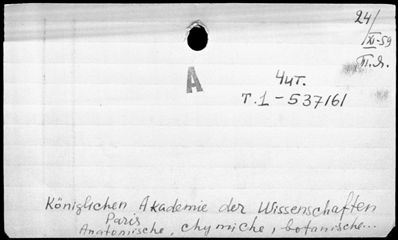 24/XI-59
П.Я.
A
Чит.
т.1-537161
Königlichen Akademie der Wissenschaften
Paris
Anatomische, chymiche, botanische...